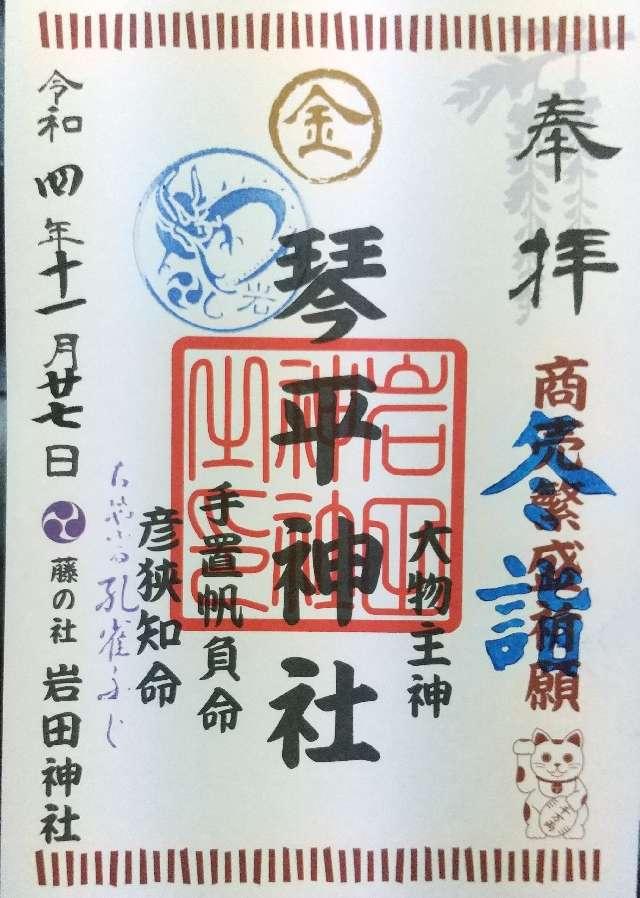 奉拝
商売繁盛祈願
参詣
金
琴平神社
大物主神
手置帆負命
彦狭知命
岩田神社之印
岩
令和四年十一月廿七日
藤の社 岩田神社
孔雀ふじ